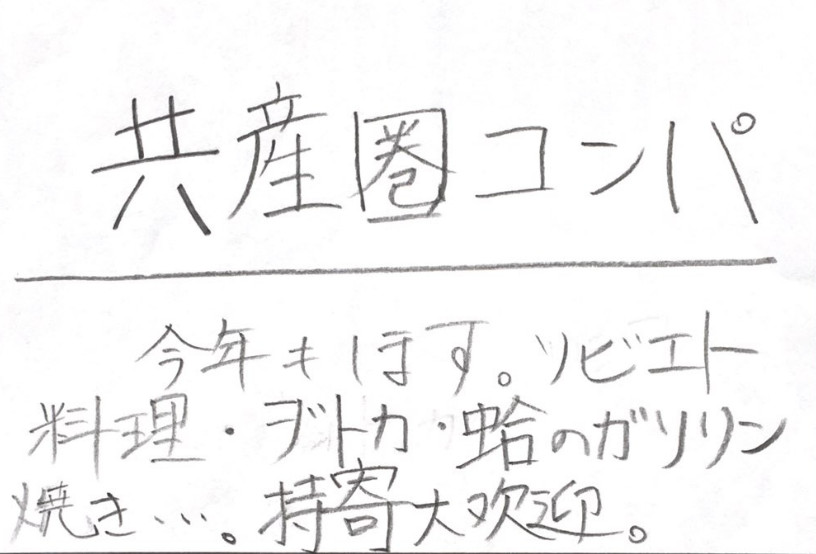 共産圏コンパ
今年もします。ソビエト
料理・ヲトカ・蛤のガソリン
焼き…。持寄大欢迎。